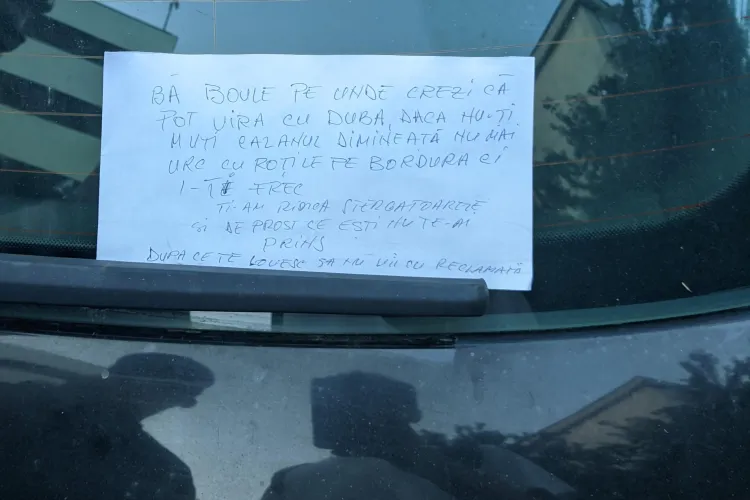 BĂ BOULE PE UNDE CREZI CĂ
POT VIRA CU DUBA, DACA NU-ȚI
MUȚI CAZANUL DIMINEAȚĂ NU MAI
URC CU ROȚILE PE BORDURA CI
ȚI-L FREC
TI-AM RIDICA ȘTERGATOARELE
SI DE PROST CE ESTI NU TE-AI
PRINS
DUPA CE TE LOVESC SA NU VII CU RECLAMATĂ